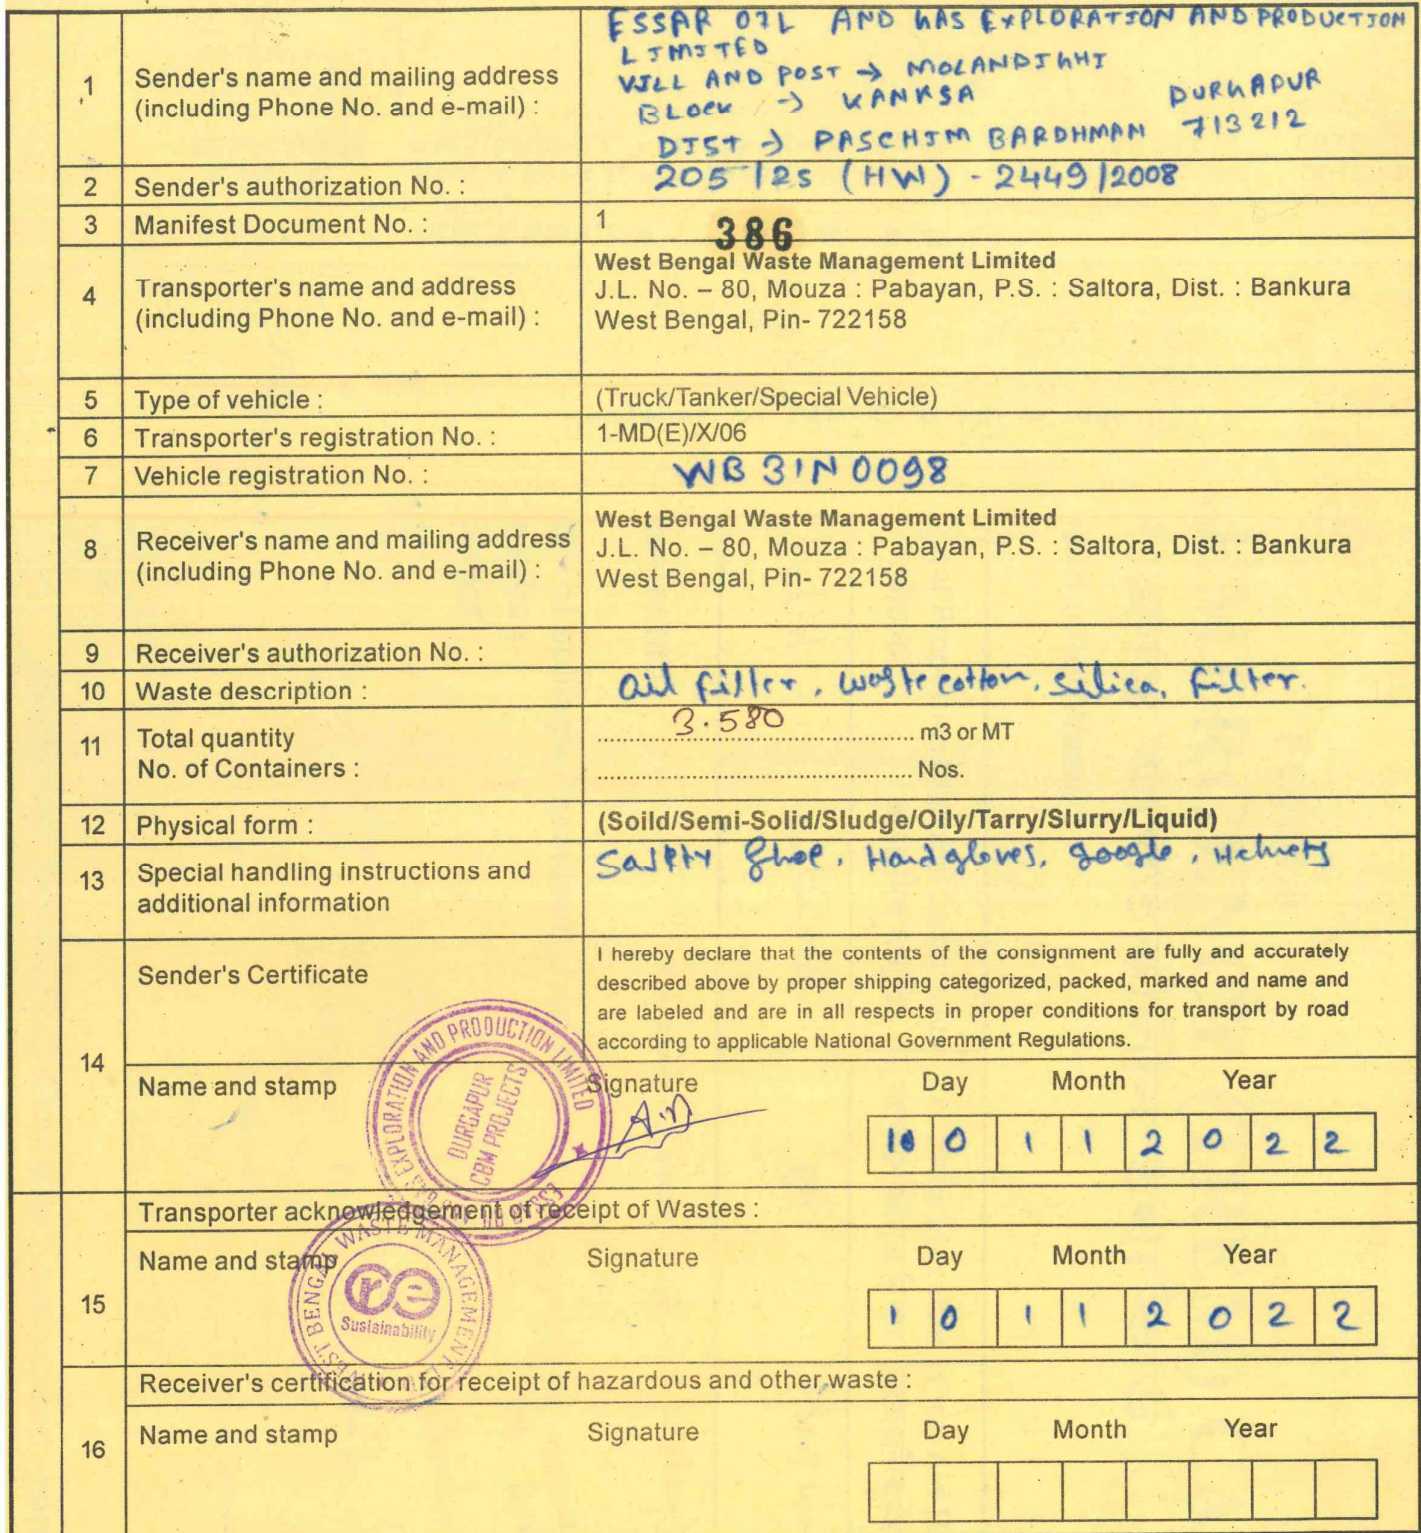 1 Sender's name and mailing address (including Phone No. and e-mail) :
ESSAR OIL AND GAS EXPLORATION AND PRODUCTION
LIMITED
VILL AND POST → MOLANDIGHI
BLOCK → KANKSA DURGAPUR
DIST → PASCHIM BARDHMAN 713212
2 Sender's authorization No. : 205/2S (HW) - 2449/2008
3 Manifest Document No. : 1 386
4 Transporter's name and address (including Phone No. and e-mail) :
West Bengal Waste Management Limited
J.L. No. – 80, Mouza : Pabayan, P.S. : Saltora, Dist. : Bankura
West Bengal, Pin- 722158
5 Type of vehicle : (Truck/Tanker/Special Vehicle)
6 Transporter's registration No. : 1-MD(E)/X/06
7 Vehicle registration No. : WB 31N 0098
8 Receiver's name and mailing address (including Phone No. and e-mail) :
West Bengal Waste Management Limited
J.L. No. – 80, Mouza : Pabayan, P.S. : Saltora, Dist. : Bankura
West Bengal, Pin- 722158
9 Receiver's authorization No. :
10 Waste description : Oil filter, waste cotton, silica, filter.
11 Total quantity 3.580 m3 or MT
No. of Containers : Nos.
12 Physical form : (Soild/Semi-Solid/Sludge/Oily/Tarry/Slurry/Liquid)
13 Special handling instructions and additional information
Hand gloves, google, Helmets
14 Sender's Certificate
I hereby declare that the contents of the consignment are fully and accurately
described above by proper shipping categorized, packed, marked and name and
are labeled and are in all respects in proper conditions for transport by road
according to applicable National Government Regulations.
Name and stamp Signature Day Month Year
10 1 1 2 0 2 2
ESSAR OIL AND GAS EXPLORATION AND PRODUCTION LIMITED
DURGAPUR
CBM PROJECTS
15 Transporter acknowledgement of receipt of Wastes :
Name and stamp Signature Day Month Year
1 0 1 1 2 0 2 2
WEST BENGAL WASTE MANAGEMENT
re
Sustainability
16 Receiver's certification for receipt of hazardous and other waste :
Name and stamp Signature Day Month Year